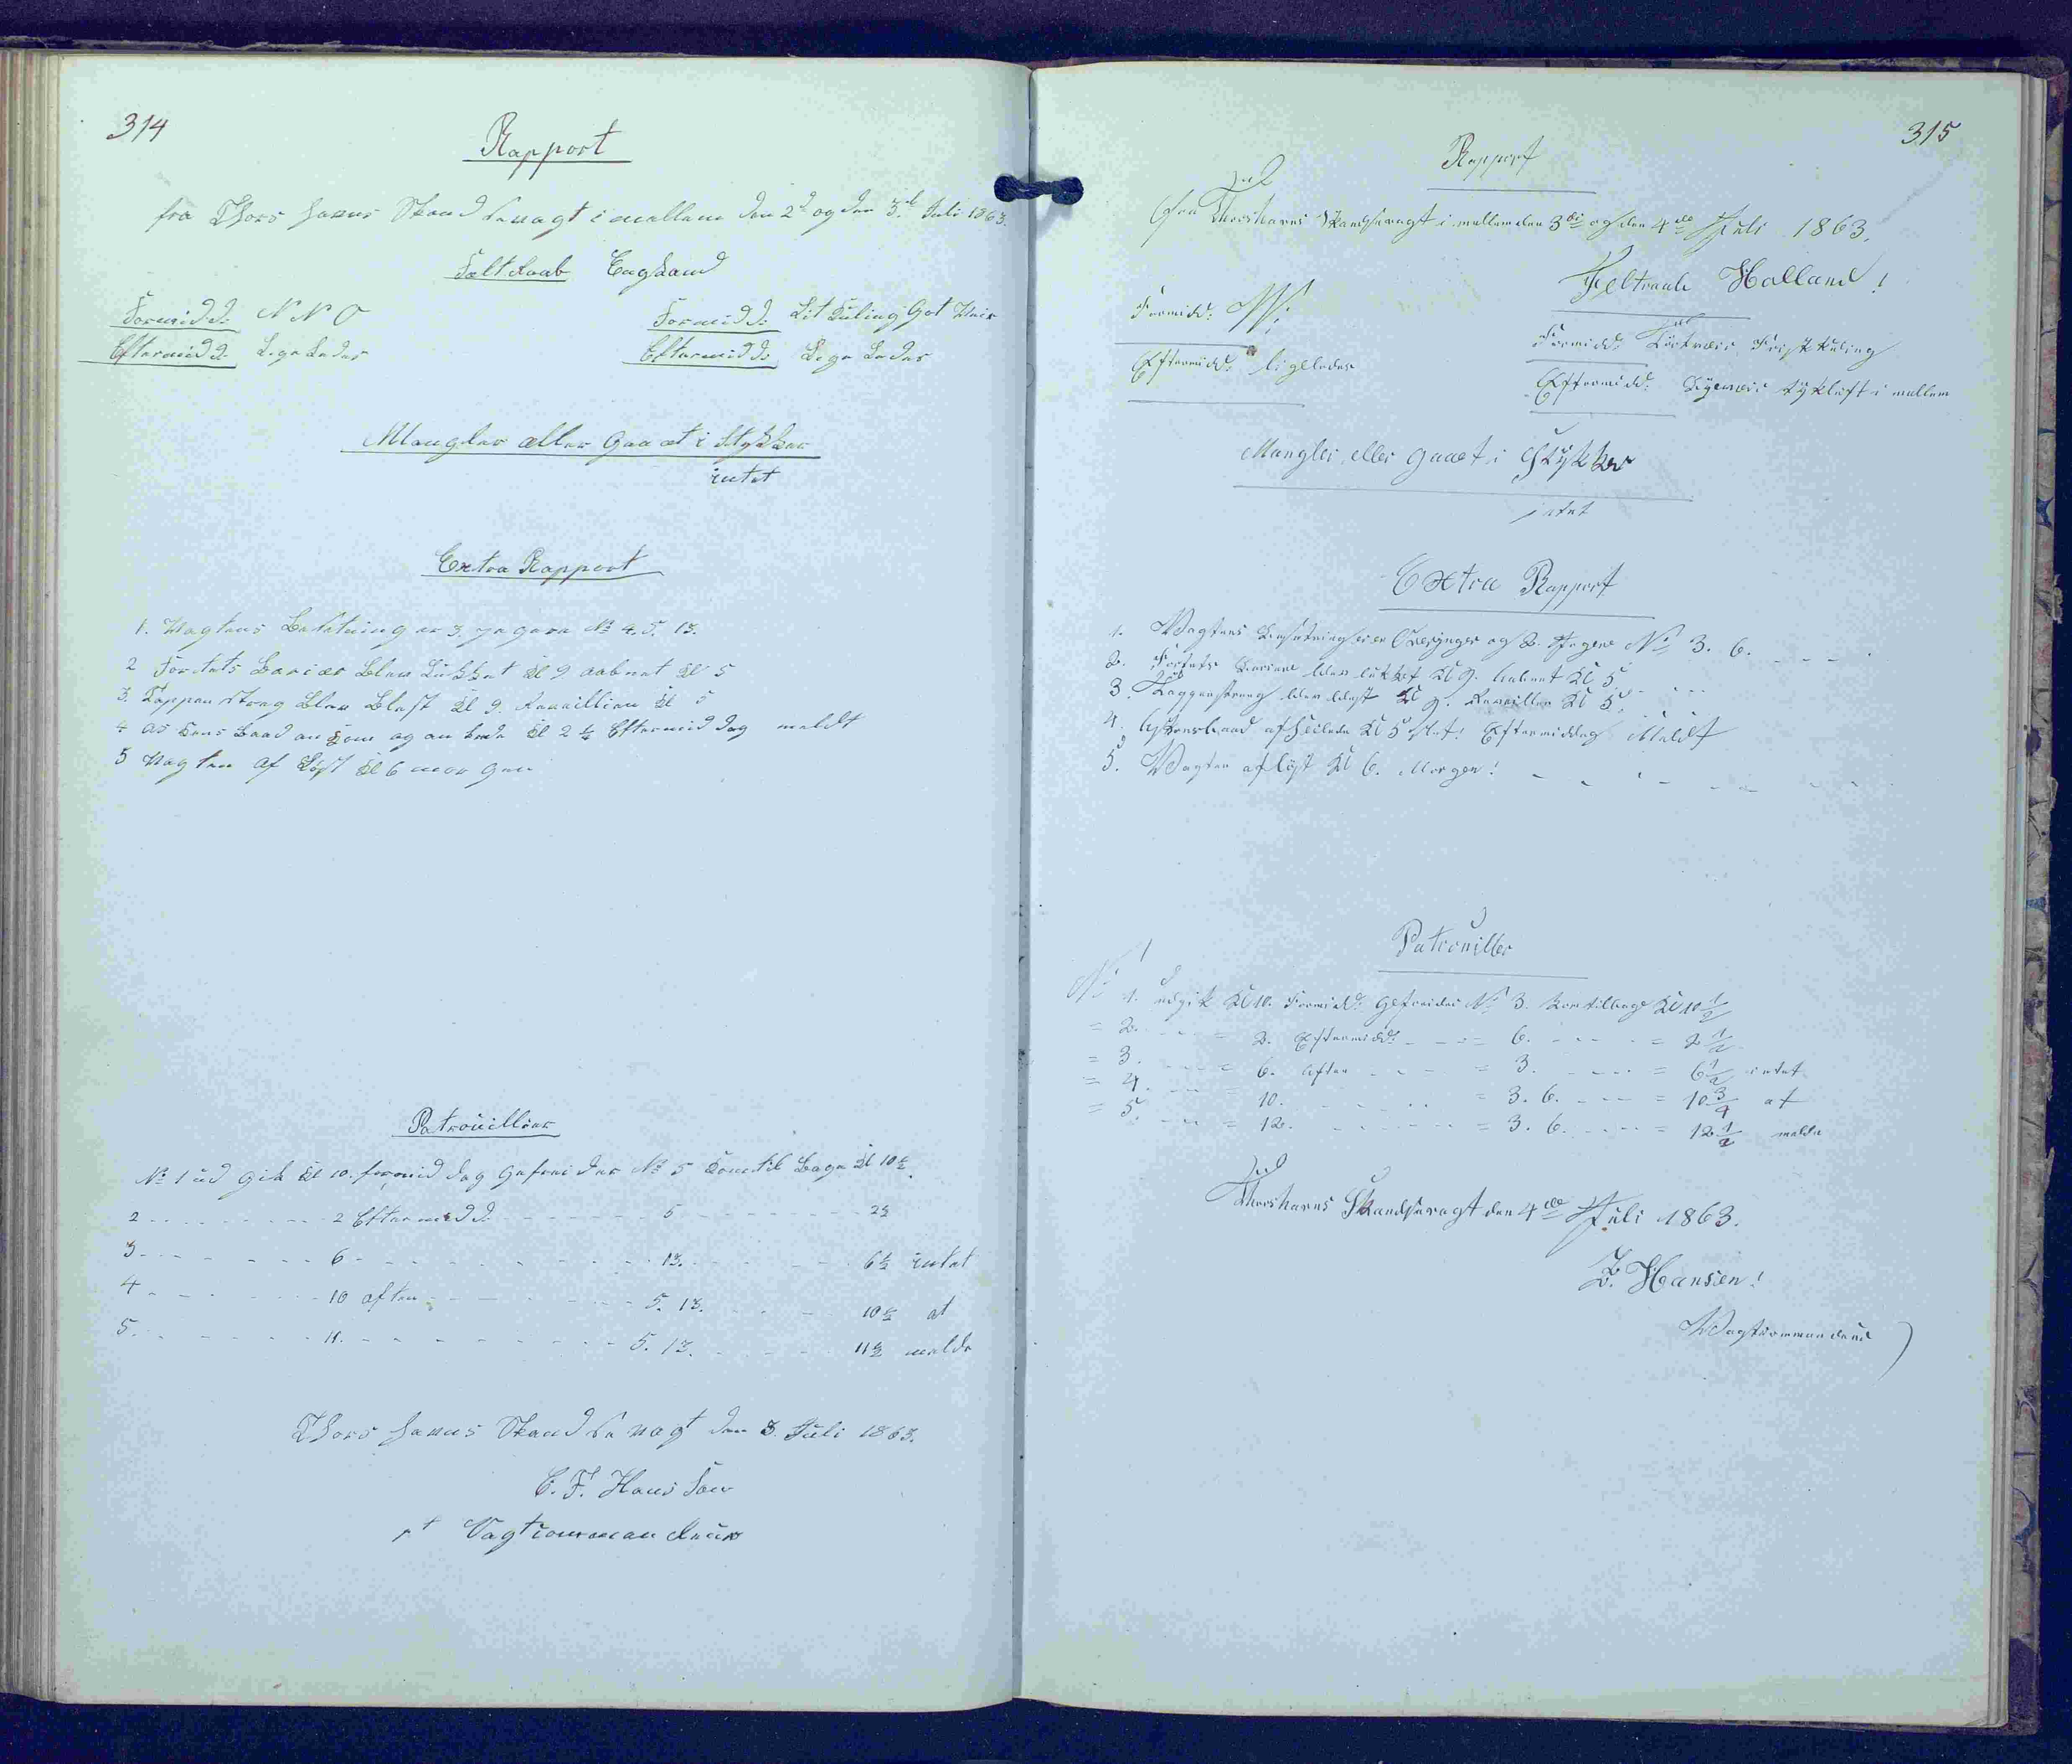 314
Rapport
fra Thorshavns Skandsevagt imellem den 2d og den 3d Juli 1863.
Feltraab England
Formidd: NNO
Formidd: Lit Kuling Got Veir
Eftermidd: Ligeledes
Eftermidd: Ligeledes
Mangler eller Gaaet i Stykker
intet
Extra Rapport
1. Vagtens Besetning er 3. Jægere No 4. 5. 13.
2 Fortets Barier blev Lukket Kl 9 aabnet Kl 5
3. Tappenstreg blev Blæst Kl 9. Reveillien Kl 5
4 Kl 2½ Eftermiddag meldt
5 Vagten afløst Kl 6 morgen
Patrouiller
No 1 udgik Kl 10. formiddag Gefreider No 5 Kom tilbage Kl 10½.
2 - - - 2 Eftermidd. - - - 5 - - - 2½
3 - - - 6 - - - 13. - - - 6½ intet
4 - - - 10 aften - - - 5. 13. - - - 10½ at
5. - - - 11. - - - 5. 13. - - - 11½ melde
Thorshavns Skandsevagt den 3. Juli 1863.
C. F. Hansen
Vagtcommandeur
315
Rapport
Fra Thorshavns Skandsevagt imellem den 3di og den 4de Juli 1863.
Feltraab Holland!
Formidd: W.
Formidd: Friskkuling
Eftermidd: ligeledes
Eftermidd: tykluft imellem
Mangler eller gaaet i Stykker
intet
Extra Rapport
1. Vagtens Besætning er en Overjæger og 2. Jægere No 3. 6. - - -
2. Fortets Bariere blev lukket Kl 9. aabnet Kl 5 - - -
3. Tappenstreg blev blæst Kl 9. Reveillen Kl 5. - - -
4. afseilede Kl 5 Eftermiddag Meldt
5. Vagten afløst Kl 6. Morgen! - - -
Patrouiller
No 1. udgik Kl 10. Formidd: Gefreider No 3. Kom tilbage Kl 10½
= 2. - - = 2. Eftermidd: - - = 6. - - - = 2½
= 3. - - = 6. Aften - - = 3. - - - = 6½ intet
= 4. - - = 10. - - - = 3. 6. - - - = 10¾ at
= 5. - - = 12. - - - = 3. 6. - - - = 12½ melde
Thorshavns Skandsevagt den 4de Juli 1863.
Z. Hansen!
Vagtkommandeur